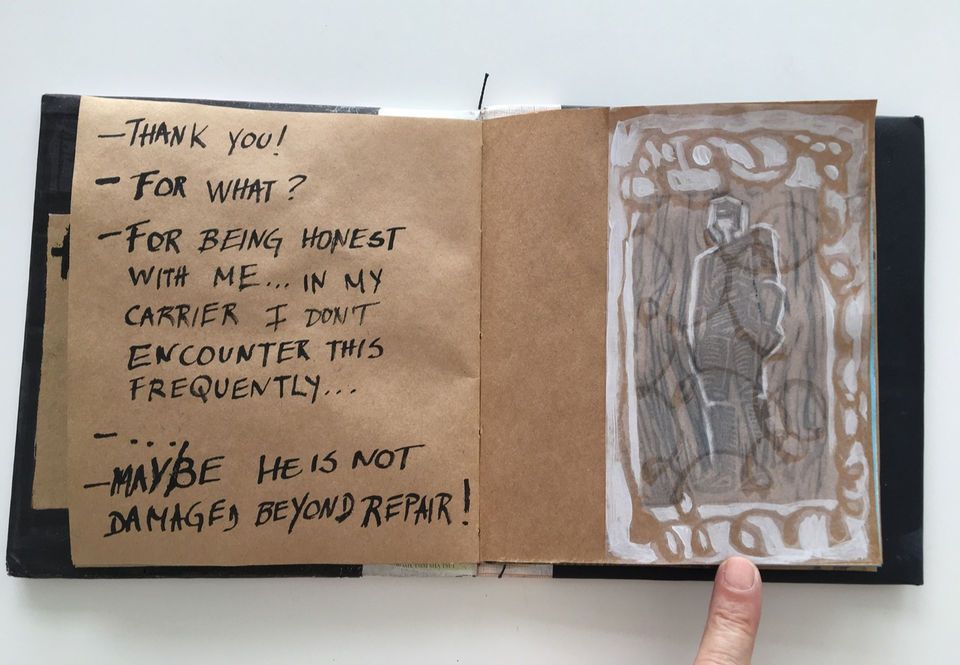 – THANK YOU!
– FOR WHAT?
– FOR BEING HONEST
WITH ME... IN MY
CARRIER I DON'T
ENCOUNTER THIS
FREQUENTLY...
– ....
– MAYBE HE IS NOT
DAMAGED BEYOND REPAIR!